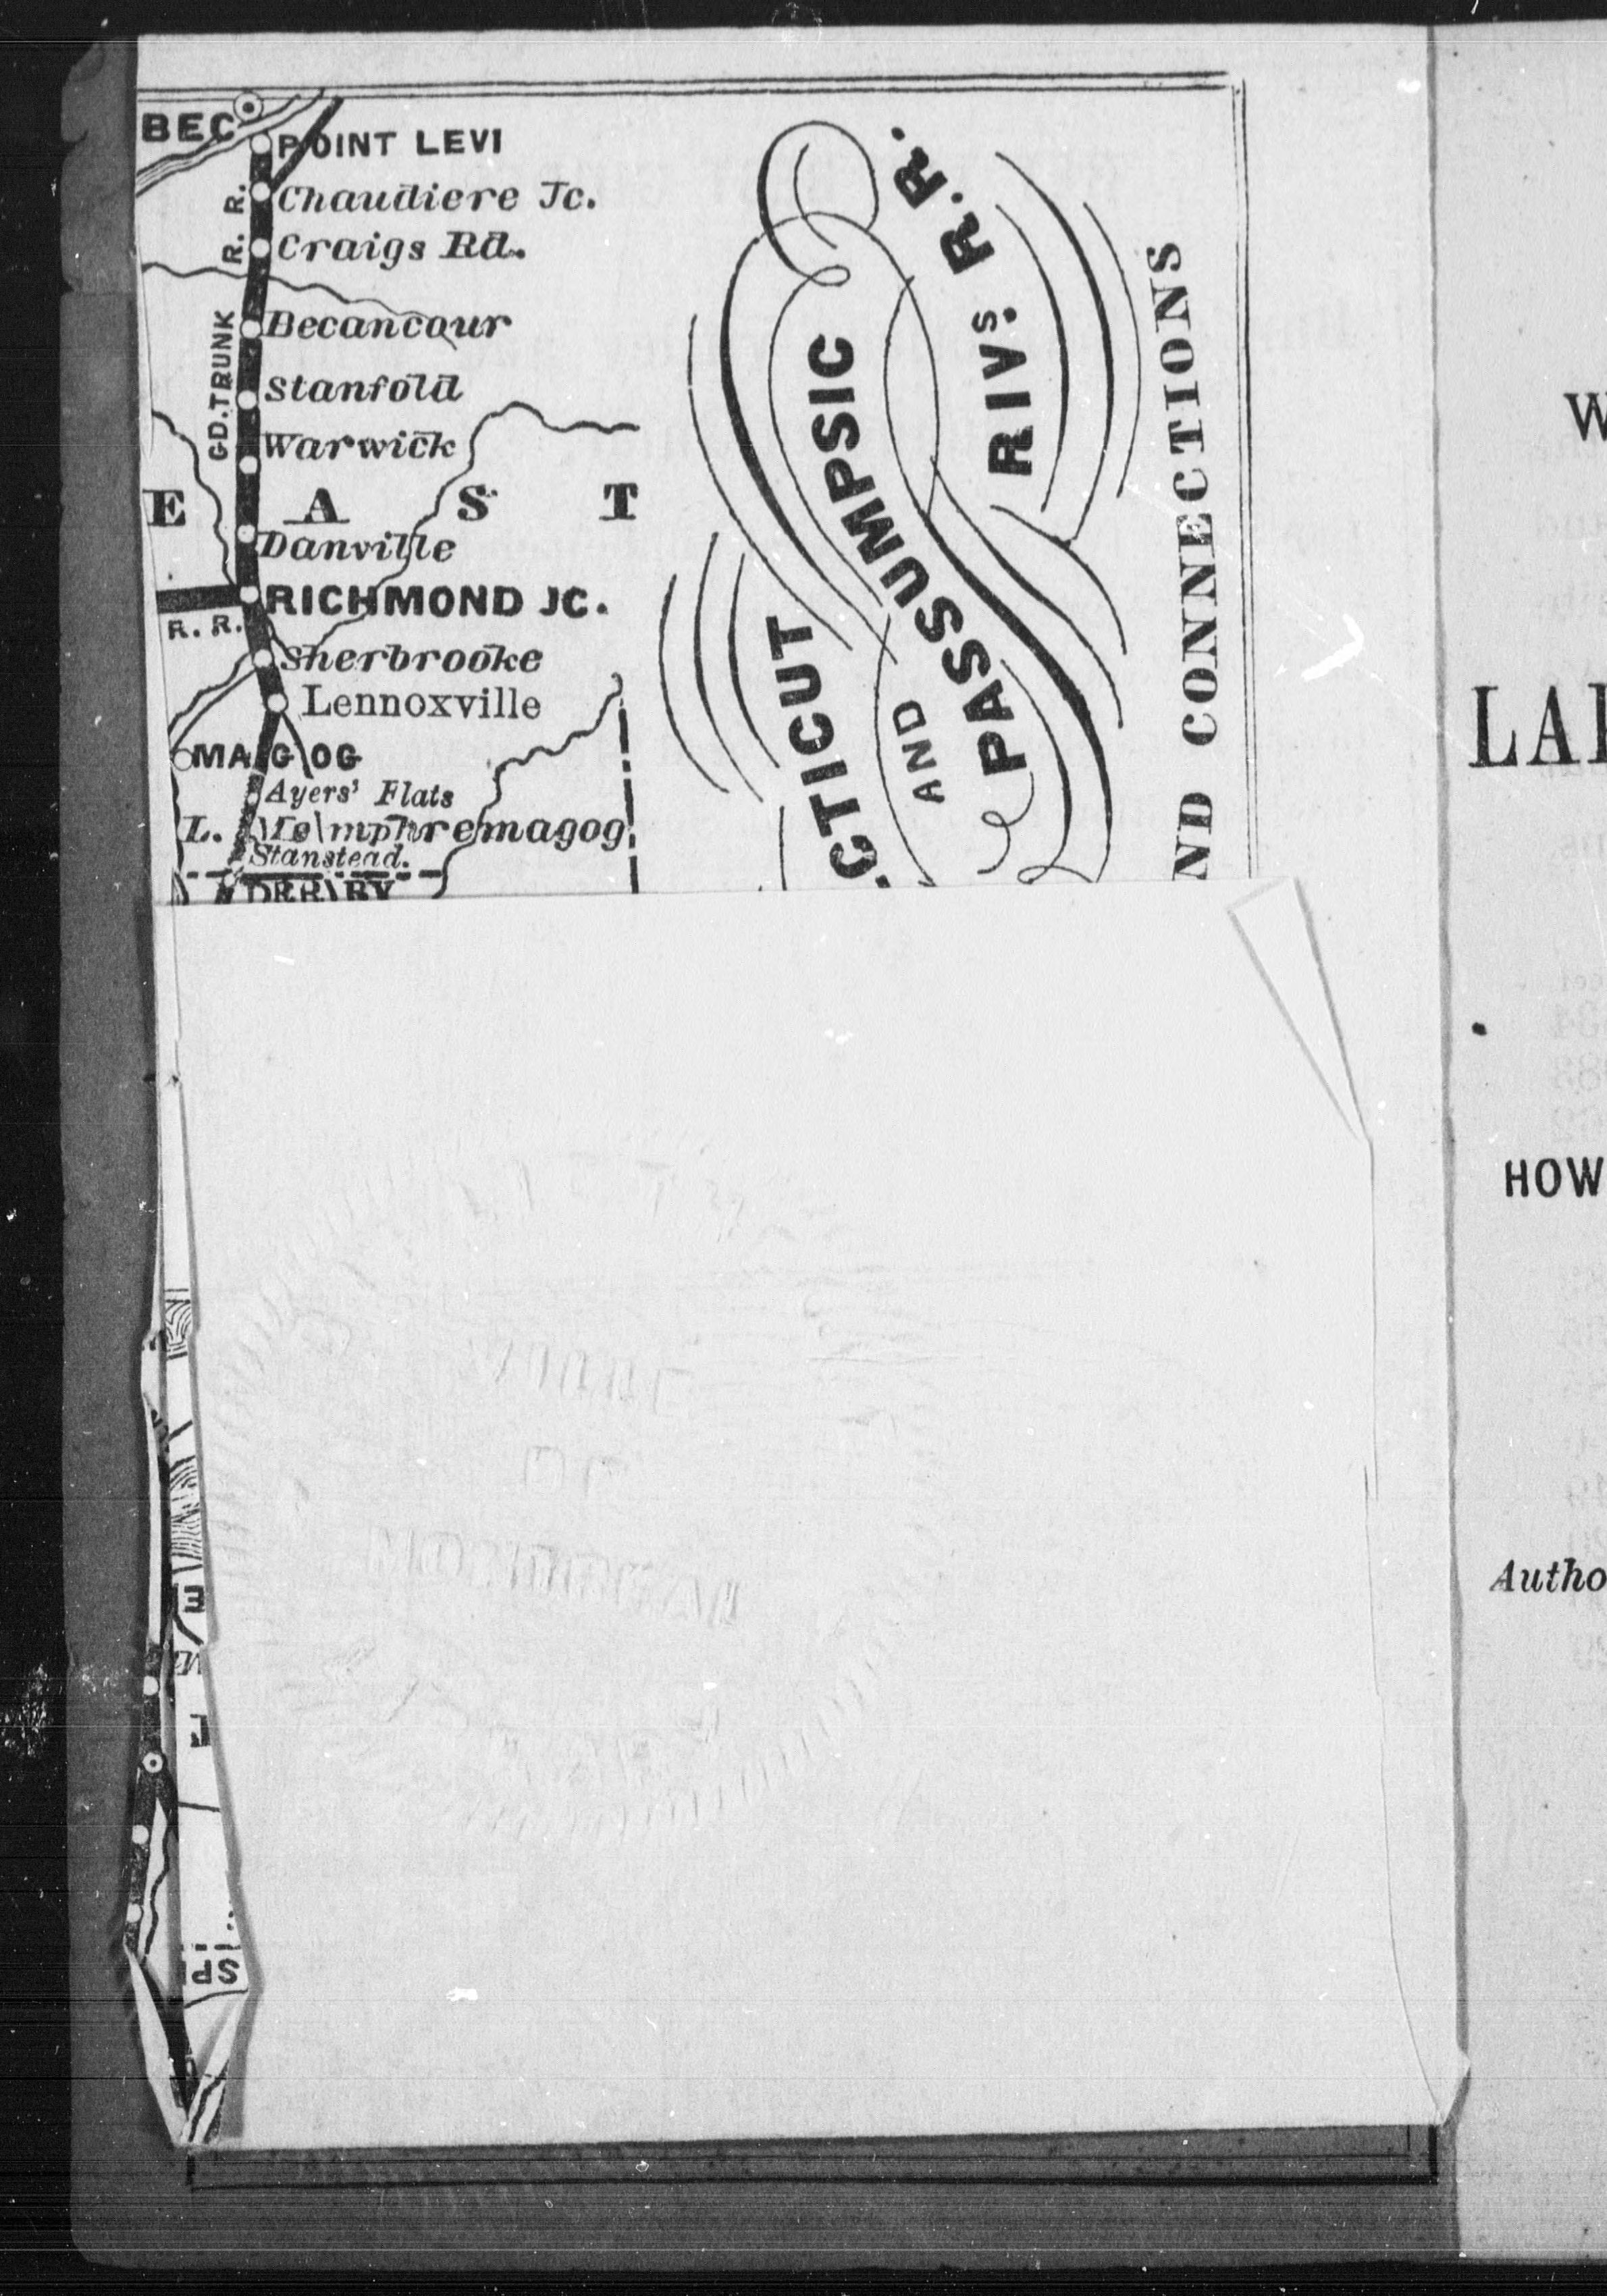 BEC
POINT LEVI
R. R.
Chaudiere Jc.
Craigs Rd.
Becancour
GD. TRUNK
Stanfold
Warwick
E A S T
Danville
RICHMOND JC.
R. R.
Sherbrooke
Lennoxville
MAGOG
Ayers' Flats
L. Memphremagog
Stanstead.
DERBY
CTICUT
AND
PASSUMPSIC
RIVS. R. R.
ND CONNECTIONS
W
LAI
HOW
Autho